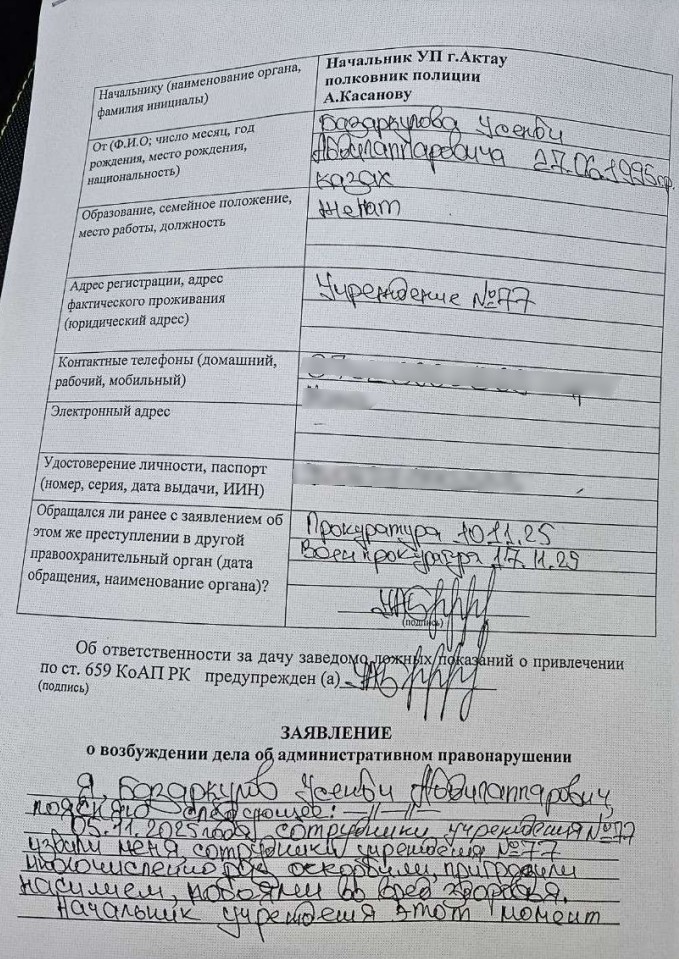 Начальнику (наименование органа, фамилия инициалы)
Начальник УП г.Актау
полковник полиции
А.Касанову
От (Ф.И.О; число месяц, год рождения, место рождения, национальность)
Базаркулова Усенби
Абдилаппаровича 27.06.1995гр.
казах
Образование, семейное положение, место работы, должность
Женат
Адрес регистрации, адрес фактического проживания (юридический адрес)
Учреждение №77
Контактные телефоны (домашний, рабочий, мобильный)
Электронный адрес
Удостоверение личности, паспорт (номер, серия, дата выдачи, ИИН)
Обращался ли ранее с заявлением об этом же преступлении в другой правоохранительный орган (дата обращения, наименование органа)?
Прокуратура 10.11.25
Воен прокуратура 17.11.25
(подпись)
Об ответственности за дачу заведомо ложных показаний о привлечении
по ст. 659 КоАП РК предупрежден (а)
(подпись)
ЗАЯВЛЕНИЕ
о возбуждении дела об административном правонарушении
Я, Базаркулов Усенби Абдилаппарович,
поясняю следующее:
05.11.2025 года, сотрудники учреждения №77
меня сотрудники учреждения №77
оскорбили, пригрозили
насилием, побоями во вред здоровья.
Начальник учреждения этот момент